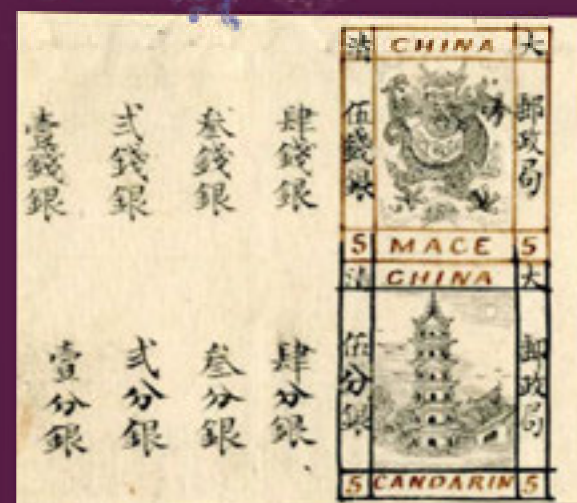 大
CHINA
郵政局
伍錢銀
5 MACE 5
肆錢銀
叁錢銀
弍錢銀
壹錢銀
大
CHINA
郵政局
伍分銀
5 CANDARIN 5
肆分銀
叁分銀
弍分銀
壹分銀